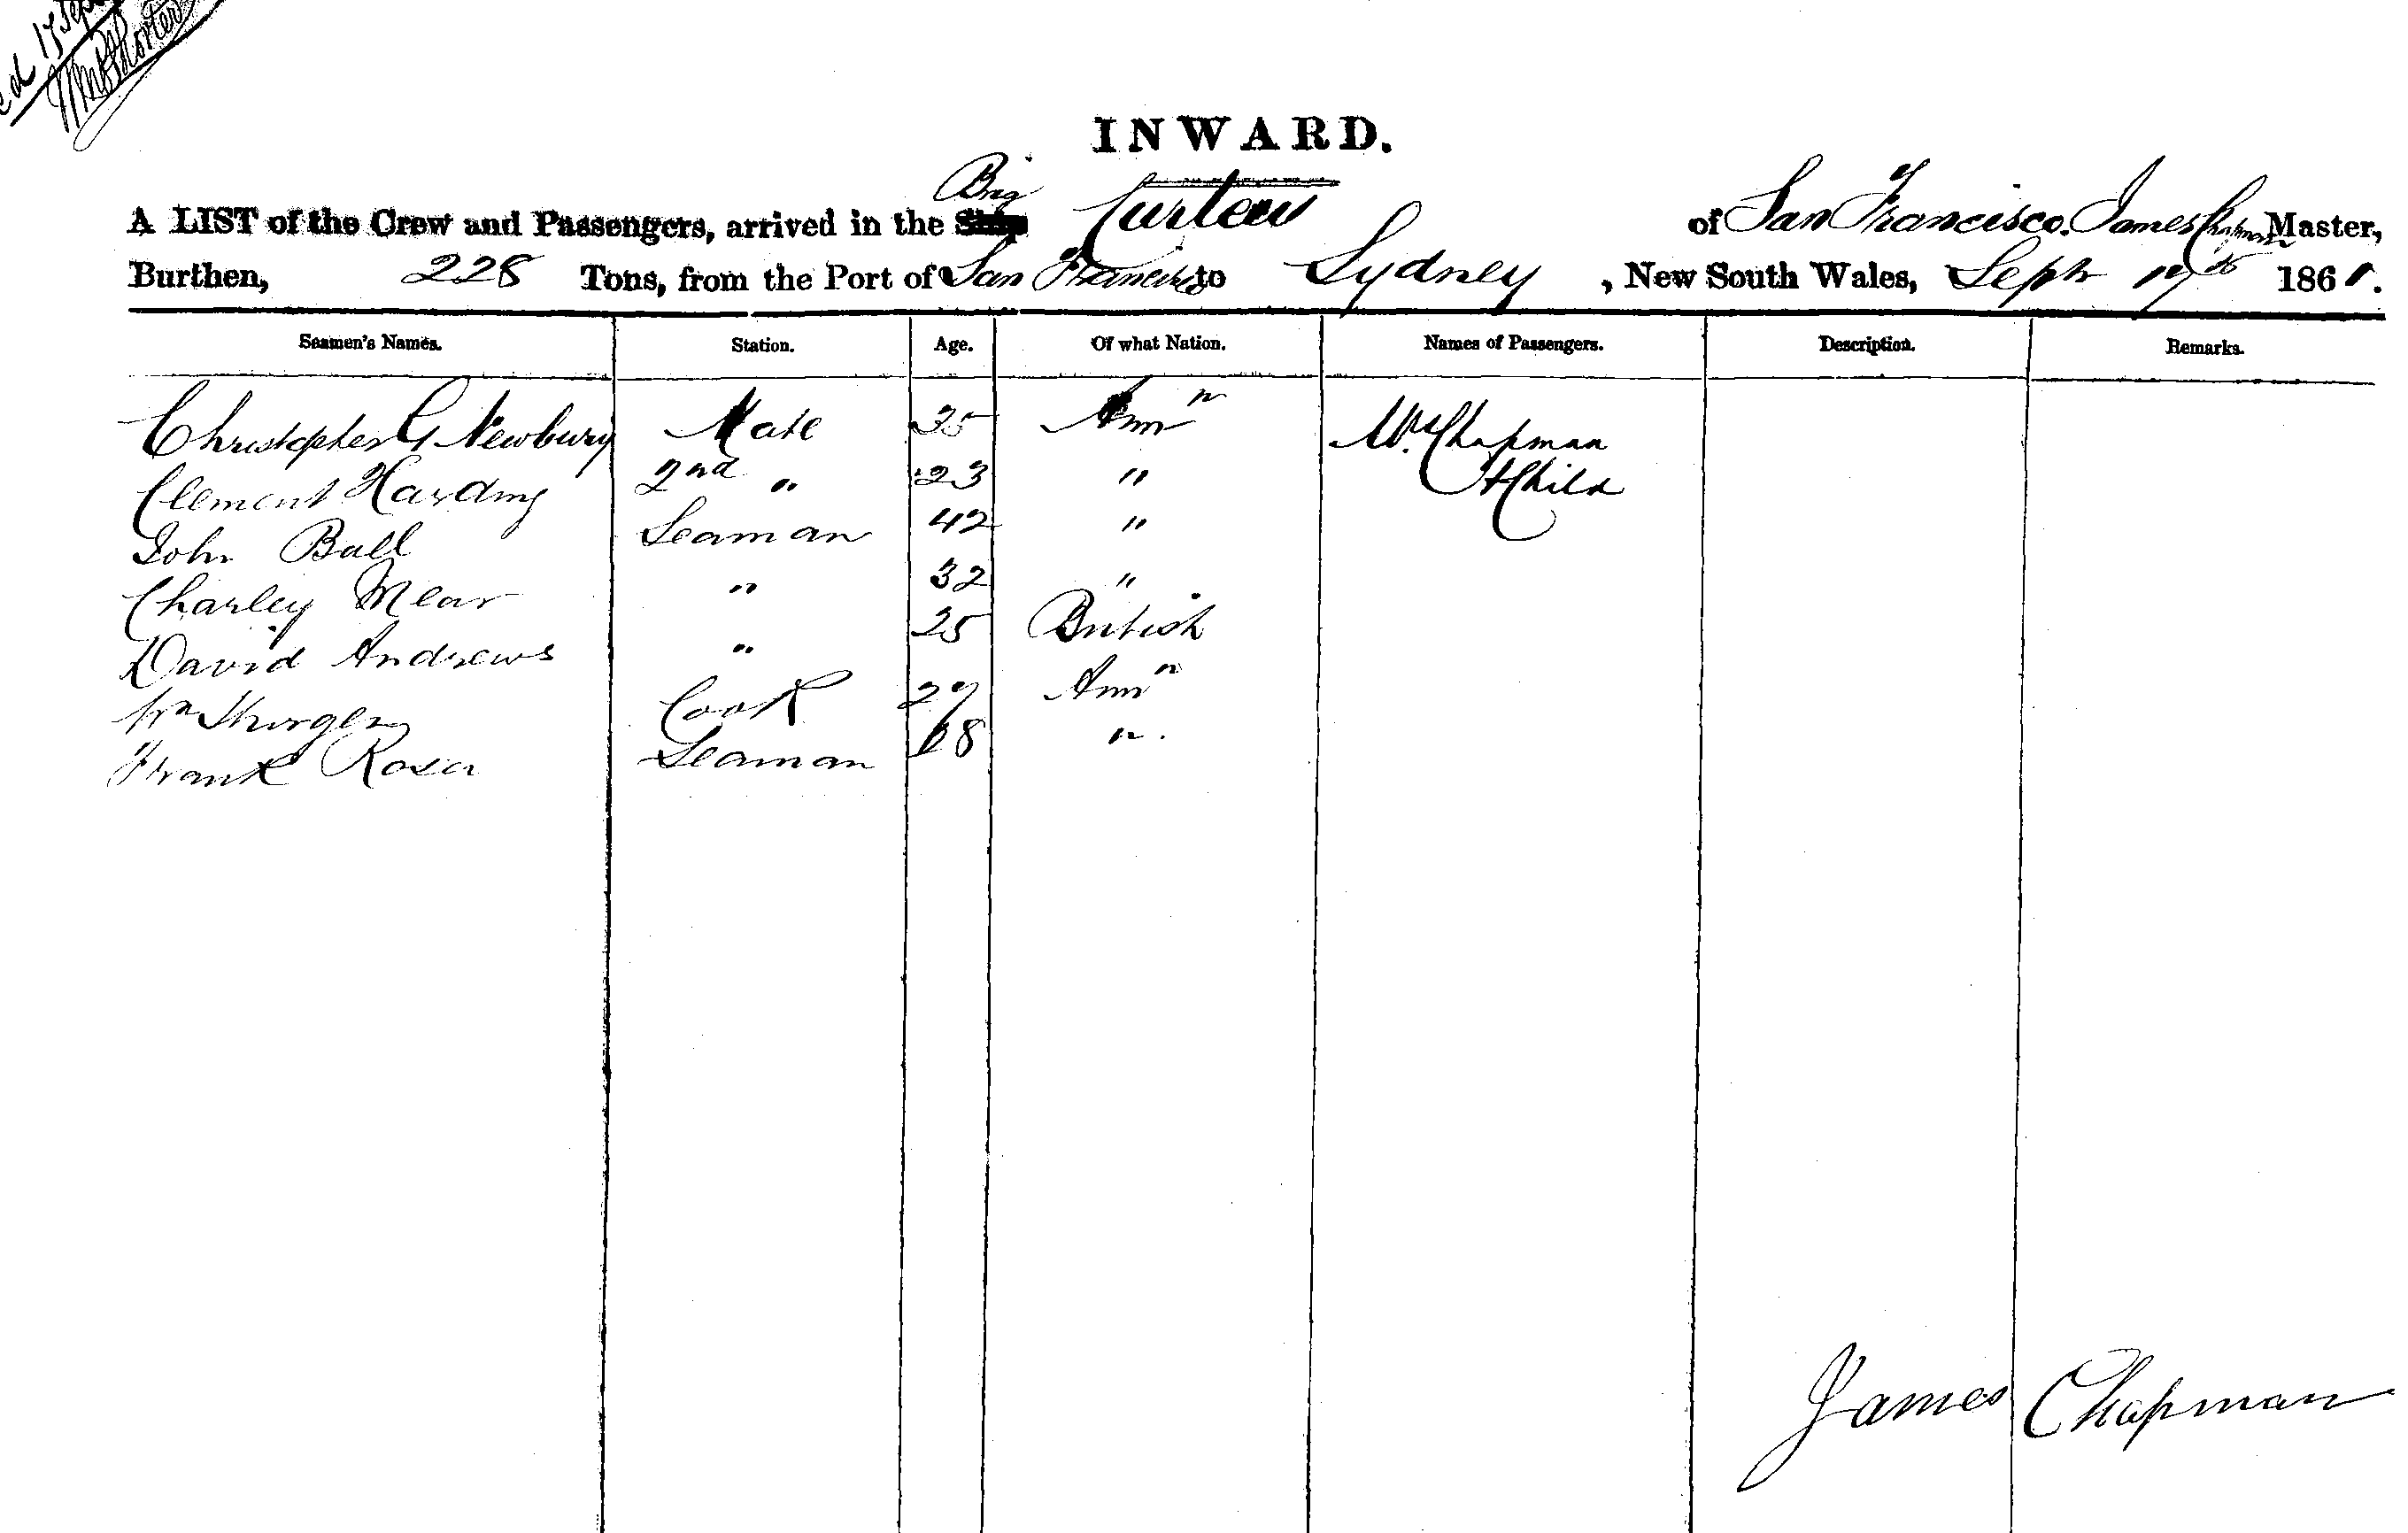 17 Sep
INWARD.
A LIST of the Crew and Passengers, arrived in the Brig Curlew of San Francisco. James Chapman Master,
Burthen, 228 Tons, from the Port of San Francisco to Sydney, New South Wales, Septr 17th 1861.
Seamen's Names. Station. Age. Of what Nation. Names of Passengers. Description. Remarks.
Christopher G Newbury Mate 35 Amn Mrs Chapman
Clement Harding 2nd " 23 " & Child
John Ball Seaman 42 "
Charley Mear " 32 "
David Andrews " 25 British
Wm Cook 27 Amn
Frank Rosa Seaman 18 "
James Chapman